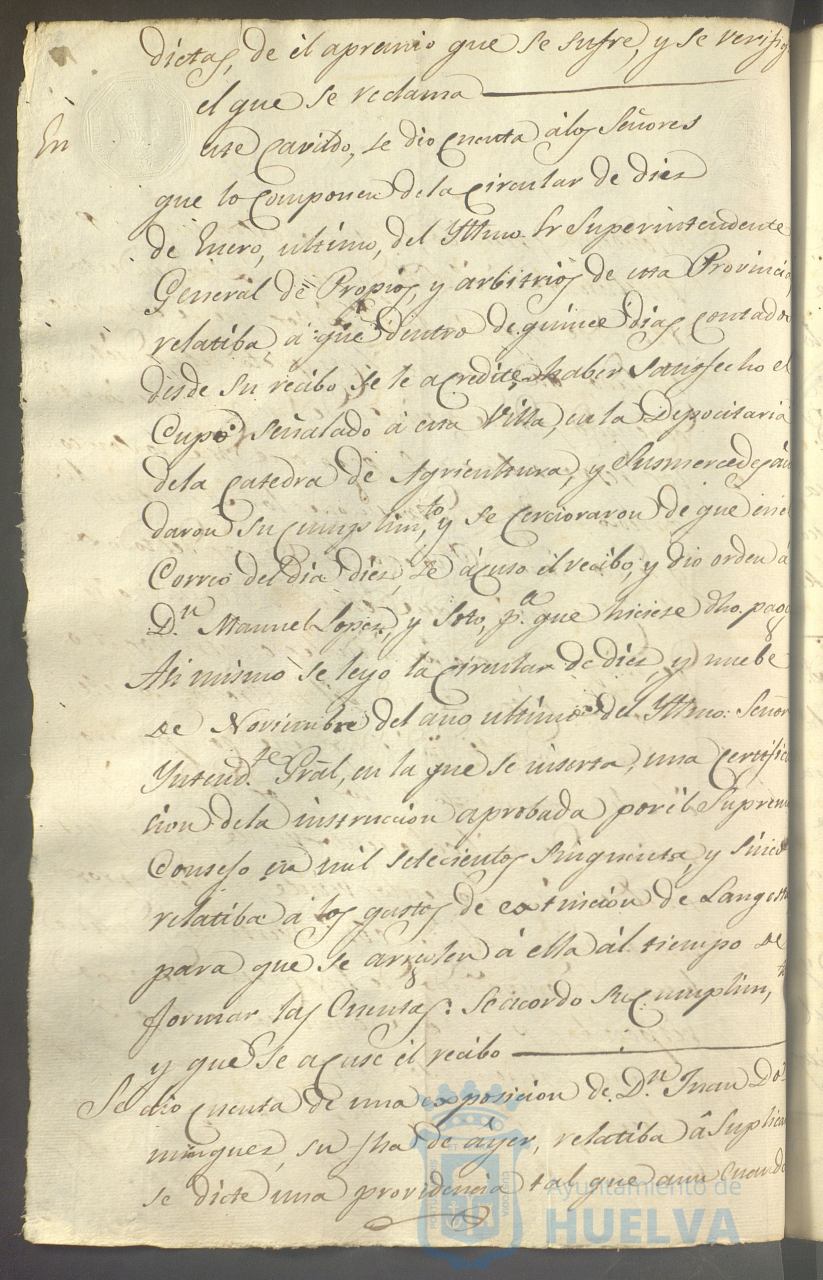 dictas, de el apremio que se sufre, y se verifiq
el que se reclama
En este Cavildo, se dio cuenta á los Señores
que lo componen de la circular de diez
de Enero, ultimo, del Yttmo. Sr Superintendente
General de Propios, y arbitrios de esta Provincia,
relatiba á que dentro de quince dias, contados
desde su recibo se le acredite haber satisfecho el
Cupo señalado á esta Villa, en la Depocitaria
dela Catedra de Agricultura, y Susmercedes án
daron su cumplim.to, y se cercioraron de que en el
Correo del dia diez, se ácuso el recibo, y dio orden á
D.n Manuel Lopez, y Soto, p.a que hiciese dho. pago
Asi mismo se leyo la circular de diez, y nuebe
de Noviembre del ano ultimo del Yttmo. Señor
Yntend.te Gral, en la que se inserta, una certifica
cion dela instruccion aprobada por el Supremo
Consejo en mil setecientos sinquenta, y sinco
relatiba á los gastos de extincion de Langosta
para que se arreglen á ella ál tiempo de
formar las Cuentas: Se acordo su Cumplim,to
y que se acuse el recibo
Se dio cuenta de una exposicion de D.n Juan Do
minguez, su fha de áyer, relatiba á Suplicar
se dicte una providencia tal que aun cuando
Ayuntamiento de
HUELVA